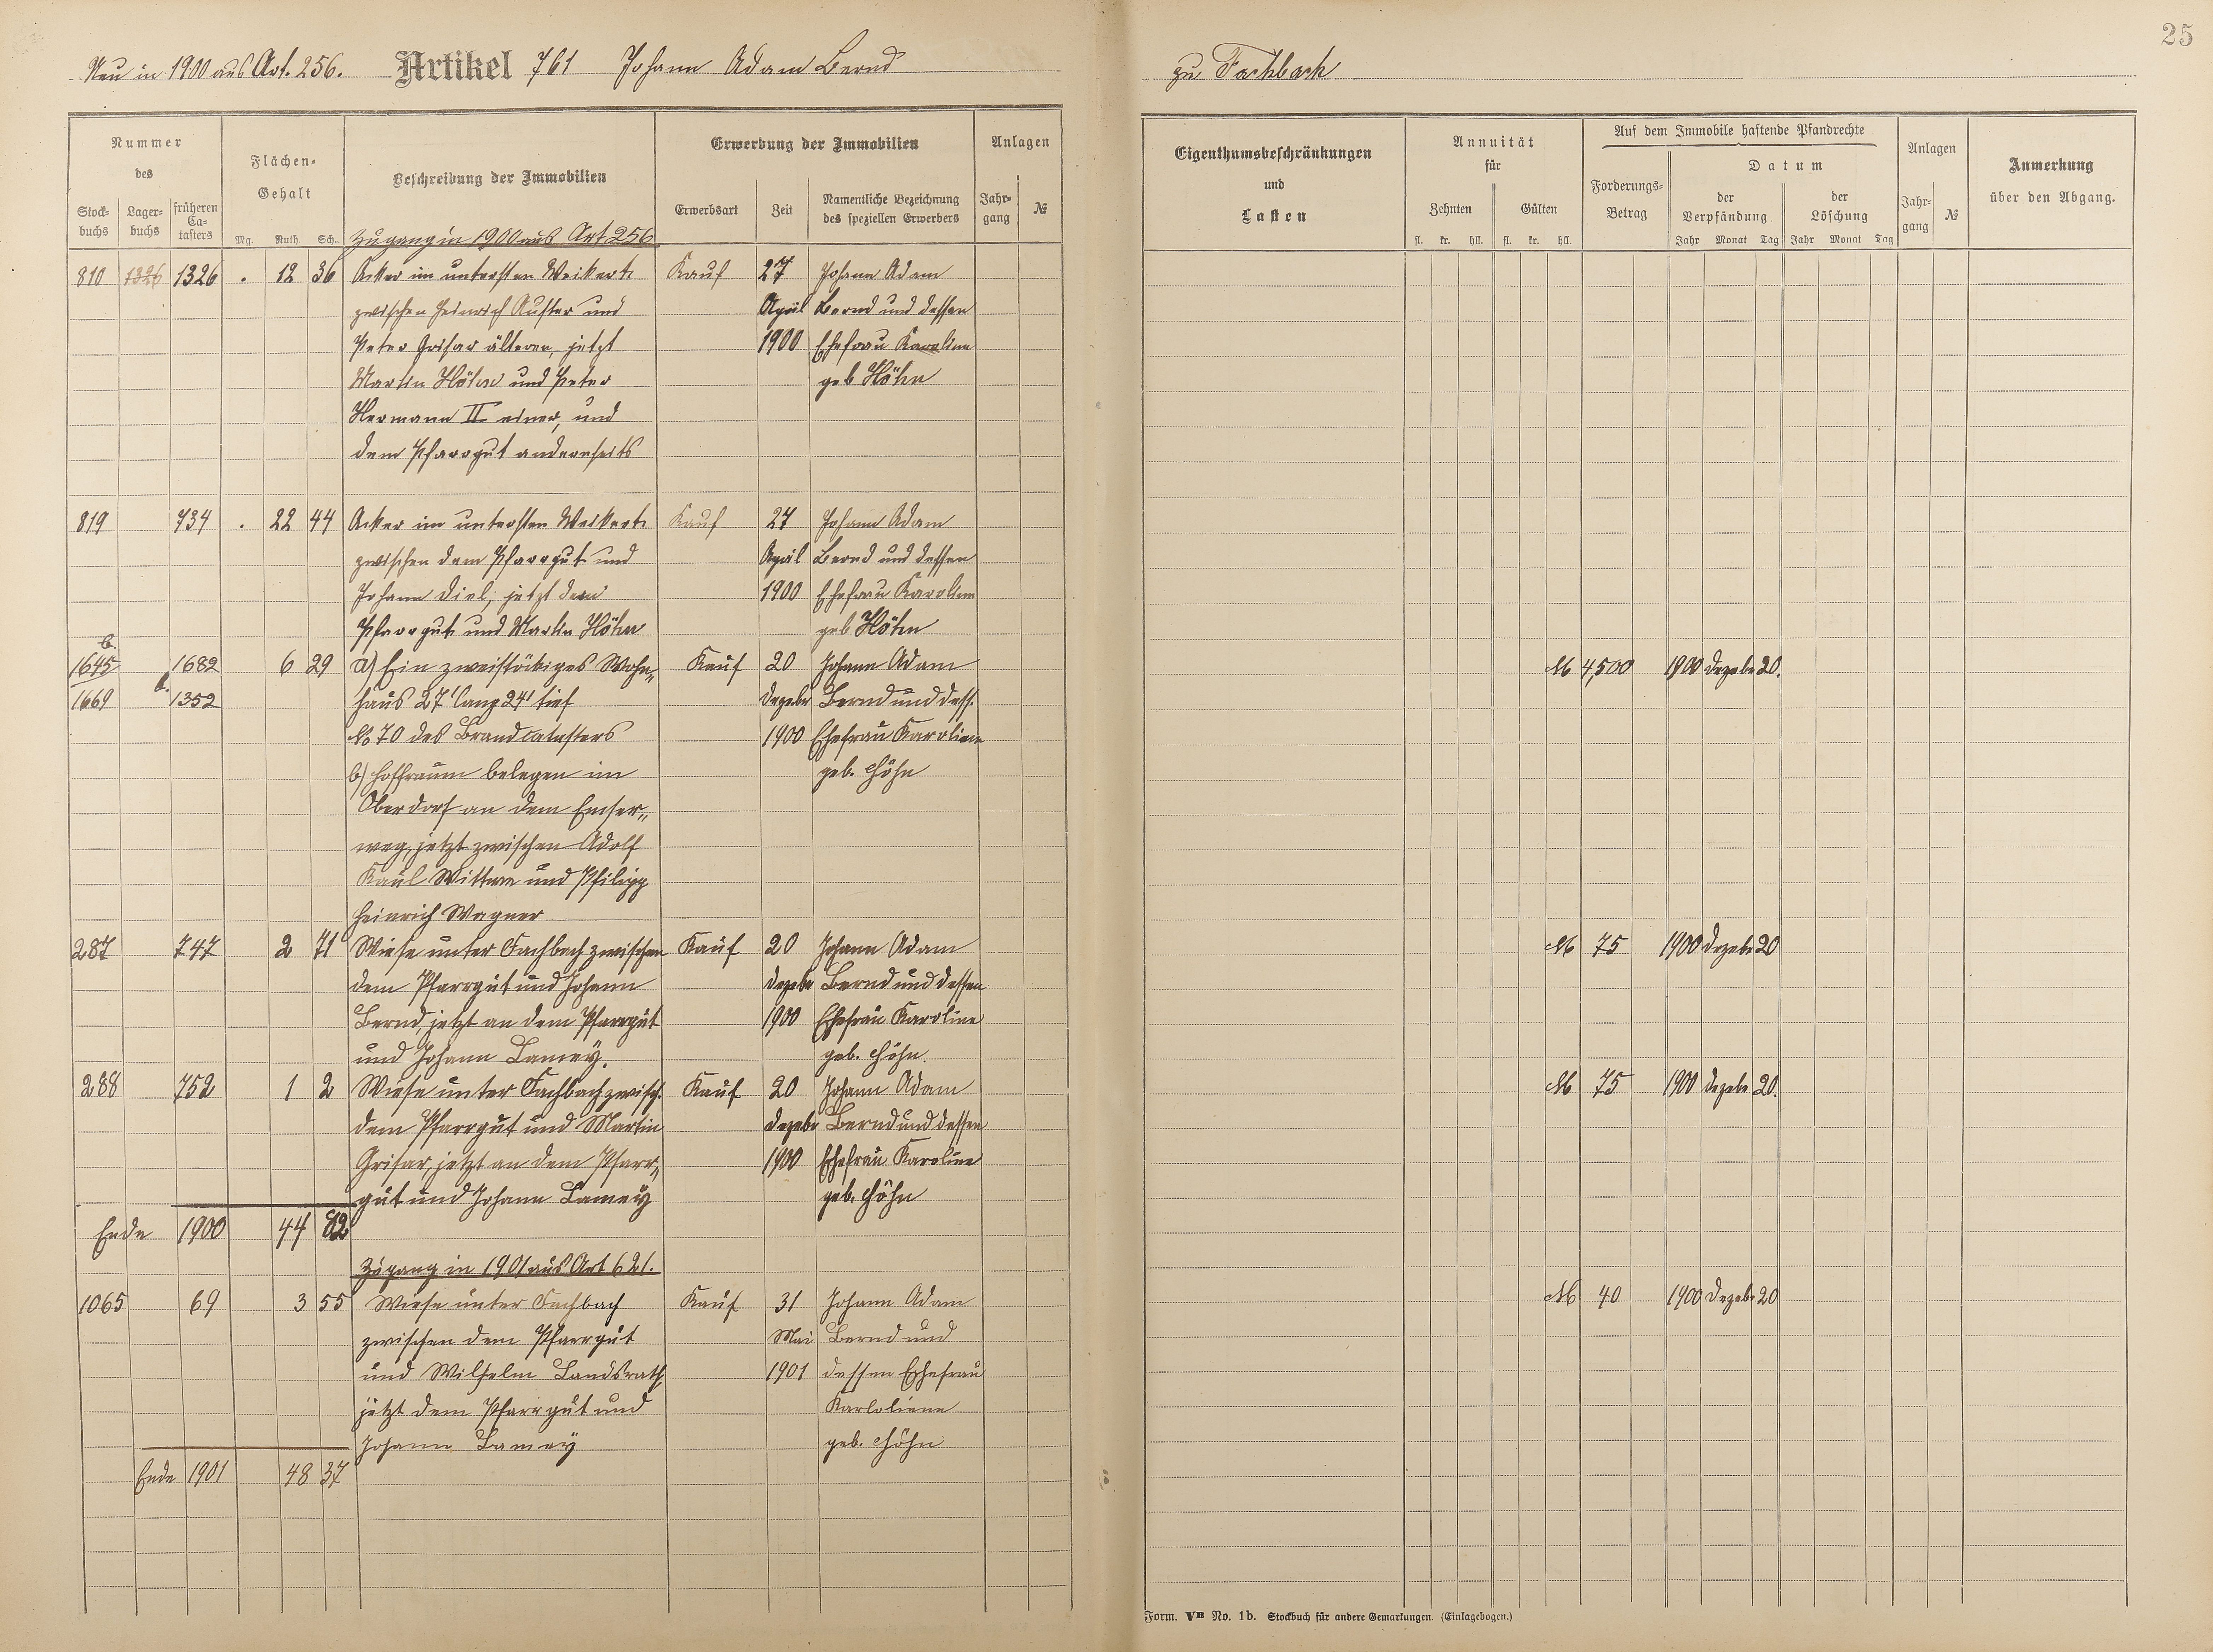 25
Neu in 1900 aus Art. 256. Artikel 761 Johann Adam Bernd
zu Fachbach
Nummer
des
Stock-
buchs
Lager-
buchs
früheren
Ca-
tasters
Flächen-
Gehalt
Mg. Ruth. Sch.
Beschreibung der Immobilien
Erwerbung der Immobilien
Erwerbsart
Zeit
Namentliche Bezeichnung
des speziellen Erwerbers
Anlagen
Jahr-
gang
№
Eigenthumsbeschränkungen
und
Lasten
Annuität
für
Zehnten
Gülten
fl. kr. hll. fl. kr. hll.
Auf dem Immobile haftende Pfandrechte
Forderungs-
Betrag
Datum
der
Verpfändung
der
Löschung
Jahr Monat Tag Jahr Monat Tag
Anlagen
Jahr-
gang
№
Anmerkung
über den Abgang.
Zugang in 1900 aus Art 256
810 1326 1326 . 12 36 Acker im untersten Weikert Kauf 27 Johann Adam
zwischen Heinrich Auster und April Bernd und dessen
Peter Grisar älteren, jetzt 1900 Ehefrau Karoline
Martin Höhn und Peter geb Höhn
Hermann II einer, und
dem Pfarrgut anderseits
819 734 . 22 44 Acker im untersten Weikert Kauf 27 Johann Adam
zwischen dem Pfarrgut und April Bernd und dessen
Johann Diel, jetzt dem 1900 Ehefrau Karoline
Pfarrgut und Martin Höhn geb Höhn
b.
1645 1682 6 29 a) Ein zweistöckiges Wohn„ Kauf 20 Johann Adam M 4,500 1900 Dezebr 20.
1669 b. 1352 haus 27' lang 24' tief Dezebr Bernd und dess.
No 70 des Brandcatasters 1900 Ehefrau Karoline
b) Hofraum belegen im geb. Höhn
Oberdorf an dem Emser„
weg, jetzt zwischen Adolf
Kaul Wittwe und Philipp
Heinrich Wagner
287 747 2 71 Wiese unter Fachbach zwischen Kauf 20 Johann Adam M 75 1900 Dezebr 20
dem Pfarrgut und Johann Dezebr Bernd und dessen
Bernd, jetzt an dem Pfarrgut 1900 Ehefrau Karoline
und Johann Lamey. geb. Höhn.
288 752 1 2 Wiese unter Fachbach zwisch. Kauf 20 Johann Adam M 75 1900 Dezebr 20.
dem Pfarrgut und Martin Dezebr Bernd und dessen
Grisar, jetzt an dem Pfarr„ 1900 Ehefrau Karoline
gut und Johann Lamey geb. Höhn
Ende 1900 44 82
Zugang in 1901 aus Art 621.
1065 69 3 55 Wiese unter Fachbach Kauf 31 Johann Adam M 40 1900 Dezebr 20
zwischen dem Pfarrgut Mai Bernd und
und Wilhelm Landsrath, 1901 dessen Ehefrau
jetzt dem Pfarrgut und Karloliene
Johann Lamey geb. Höhn
Ende 1901 48 37
Form. VB No. 1b. Stockbuch für andere Gemarkungen. (Einlagebogen.)